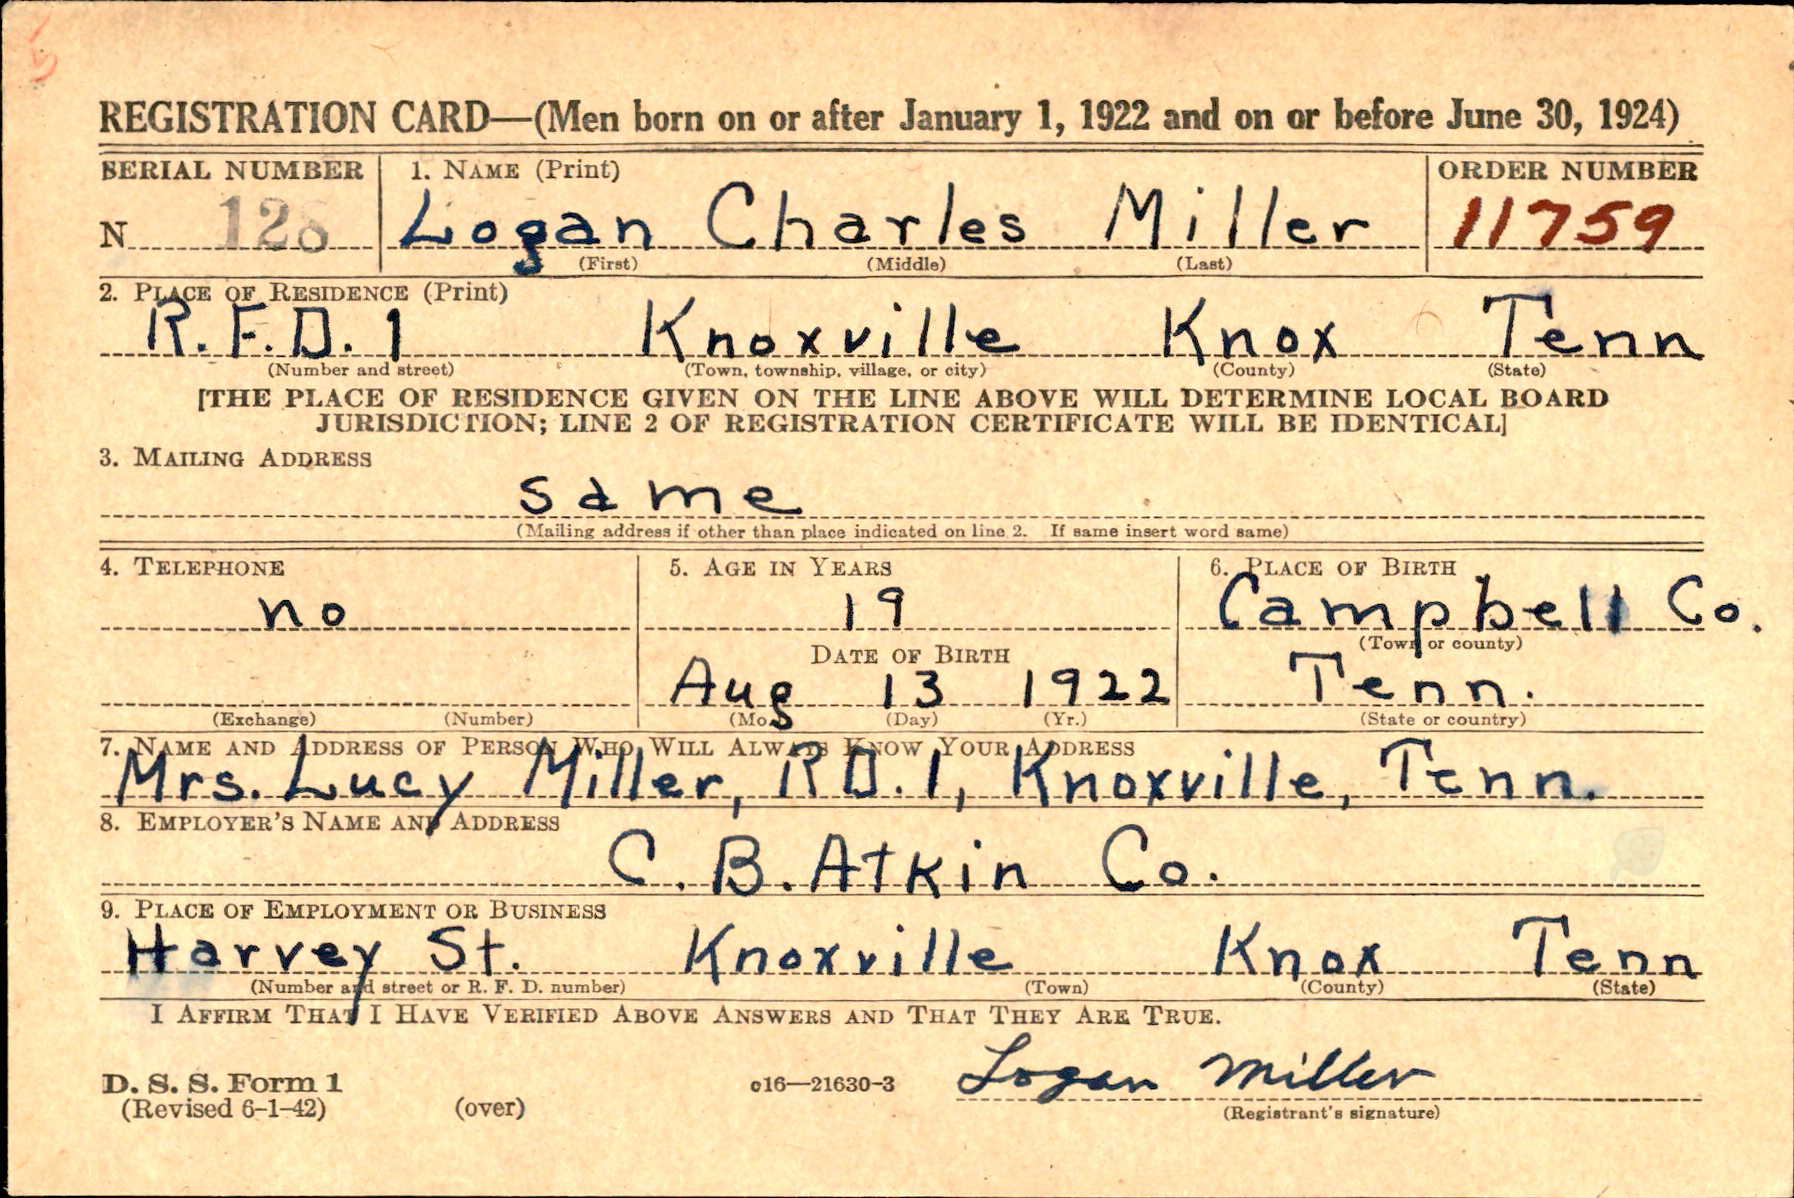 REGISTRATION CARD—(Men born on or after January 1, 1922 and on or before June 30, 1924)
SERIAL NUMBER 1. NAME (Print) ORDER NUMBER
N 128 Logan Charles Miller 11759
(First) (Middle) (Last)
2. PLACE OF RESIDENCE (Print)
R.F.D. 1 Knoxville Knox Tenn
(Number and street) (Town, township, village, or city) (County) (State)
[THE PLACE OF RESIDENCE GIVEN ON THE LINE ABOVE WILL DETERMINE LOCAL BOARD
JURISDICTION; LINE 2 OF REGISTRATION CERTIFICATE WILL BE IDENTICAL]
3. MAILING ADDRESS
same
(Mailing address if other than place indicated on line 2. If same insert word same)
4. TELEPHONE 5. AGE IN YEARS 6. PLACE OF BIRTH
no 19 Campbell Co.
(Town or county)
DATE OF BIRTH
Aug 13 1922 Tenn.
(Exchange) (Number) (Mo.) (Day) (Yr.) (State or country)
7. NAME AND ADDRESS OF PERSON WHO WILL ALWAYS KNOW YOUR ADDRESS
Mrs. Lucy Miller, RD.1, Knoxville, Tenn.
8. EMPLOYER'S NAME AND ADDRESS
C.B. Atkin Co.
9. PLACE OF EMPLOYMENT OR BUSINESS
Harvey St. Knoxville Knox Tenn
(Number and street or R. F. D. number) (Town) (County) (State)
I AFFIRM THAT I HAVE VERIFIED ABOVE ANSWERS AND THAT THEY ARE TRUE.
Logan Miller
D. S. S. Form 1 c16—21630-3
(Revised 6-1-42) (over) (Registrant's signature)